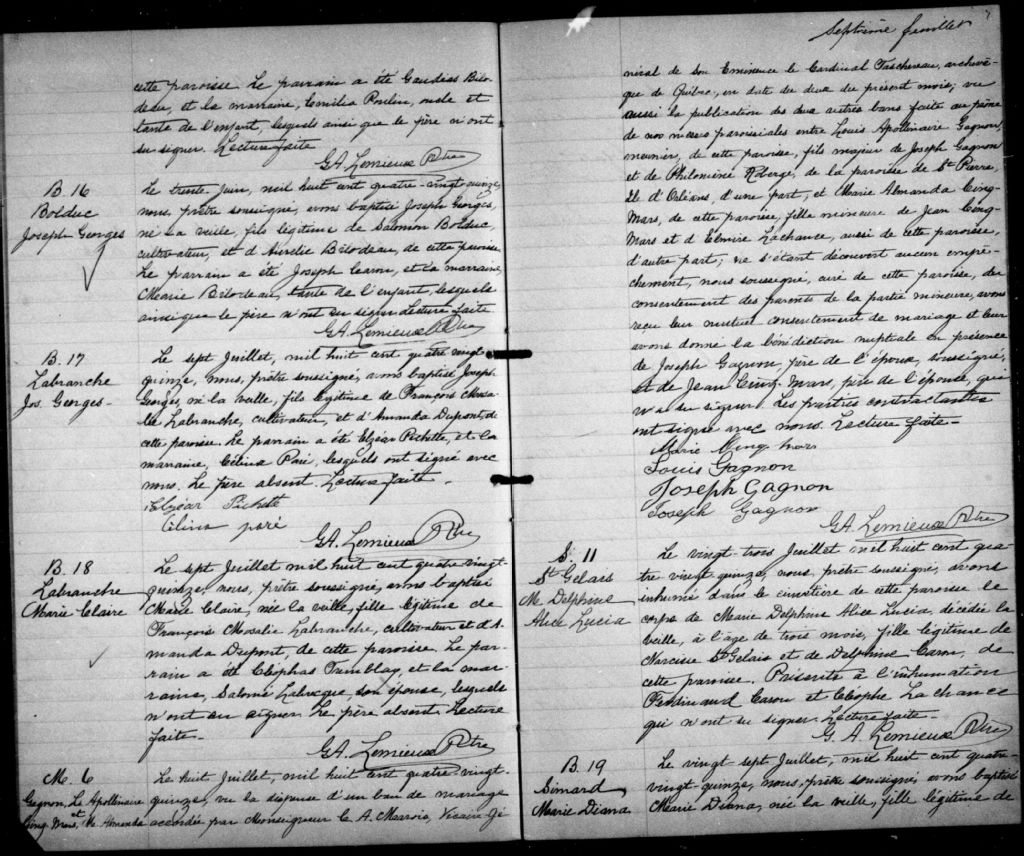 cette paroisse. Le parrain a été Gaudias Bilo-
deau, et la marraine, Emilia Poulin, oncle et
tante de l'enfant, lesquels ainsi que le père n'ont
su signer. Lecture faite
G.A. Lemieux Ptre
B. 16
Bolduc
Joseph Georges
Le trente Juin, mil huit cent quatre-vingt quinze,
nous, prêtre soussigné, avons baptisé Joseph Georges,
né la veille, fils légitime de Salomon Bolduc,
cultivateur, et d'Aurélie Bilodeau, de cette paroisse.
Le parrain a été Joseph Caron, et la marraine
Marie Bilodeau, tante de l'enfant, lesquels
ainsi que le père n'ont su signer. Lecture faite
G.A. Lemieux Ptre
B. 17
Labranche
Jos. Georges-
Le sept Juillet, mil huit cent quatre vingt-
quinze, nous, prêtre soussigné, avons baptisé Joseph
Georges, né la veille, fils légitime de François
Labranche, cultivateur, et d'Amanda Dupont, de
cette paroisse. Le parrain a été Elzéar Pichette, et la
marraine, Célina Paré, lesquels ont signé avec
nous. Le père absent. Lecture faite.
Elzéar Pichette
Célina paré
G.A. Lemieux Ptre
B. 18
Labranche
Marie Claire
Le sept Juillet mil huit cent quatre vingt-
quinze, nous, prêtre soussigné, avons baptisé
Marie Claire, née la veille, fille légitime de
François Labranche, cultivateur et d'A-
manda Dupont, de cette paroisse. Le par-
rain a été Cléophas Tremblay, et la mar-
raine, Salomé son épouse, lesquels
n'ont su signer. Le père absent. Lecture
faite-
G.A. Lemieux Ptre
M. 6
Gagnon, Ls Apollinaire
et
Cinq-Mars, M. Amanda
Le huit Juillet, mil huit cent quatre-vingt-
quinze, vu la dispense d'un ban de mariage
accordée par Monseigneur C. A. Marois, Vicaire Gé
Septième feuillet
néral de Son Eminence le Cardinal Taschereau, archevê-
que de Québec, en date du deux du présent mois; vu
aussi la publication des deux autres bans faite au prône
de nos messes paroissiales entre Louis Apollinaire Gagnon,
meunier, de cette paroisse, fils majeur de Joseph Gagnon
et de Philomène Roberge, de la paroisse de St Pierre,
Ile d'Orléans, d'une part; et Marie Amanda Cinq-
Mars, de cette paroisse, fille mineure de Jean Cinq-
Mars et d'Elmire Lachance, aussi de cette paroisse,
d'autre part; ne s'étant découvert aucun empê-
chement, nous soussigné, curé de cette paroisse, du
consentement des parents de la partie mineure, avons
reçu leur mutuel consentement de mariage et leur
avons donné la bénédiction nuptiale en présence
de Joseph Gagnon, père de l'époux, soussigné,
et de Jean Cinq-Mars, père de l'épouse, qui
n'a su signer. Les parties contractantes
ont signé avec nous. Lecture faite-
Marie Cinq mars
Louis Gagnon
Joseph Gagnon
Joseph Gagnon
G.A. Lemieux Ptre
S. 11
St Gelais
M. Delphine
Alice Lucia
Le vingt-trois Juillet mil huit cent qua-
tre vingt quinze, nous, prêtre soussigné, avons
inhumé dans le cimetière de cette paroisse le
corps de Marie Delphine Alice Lucia, décédée la
veille, à l'âge de trois mois, fille légitime de
Narcisse St Gelais et de Delphine Caron, de
cette paroisse. Présents à l'inhumation
Ferdinand Caron et Cléophe Lachance
qui n'ont su signer. Lecture faite-
G. A. Lemieux Ptre
B. 19
Simard
Marie Diana
Le vingt sept Juillet, mil huit cent quatre-
vingt-quinze, nous, prêtre soussigné avons baptisé
Marie Diana, née la veille, fille légitime de